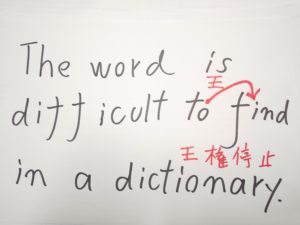 The word is
王
difficult to find
王権停止
in a dictionary.